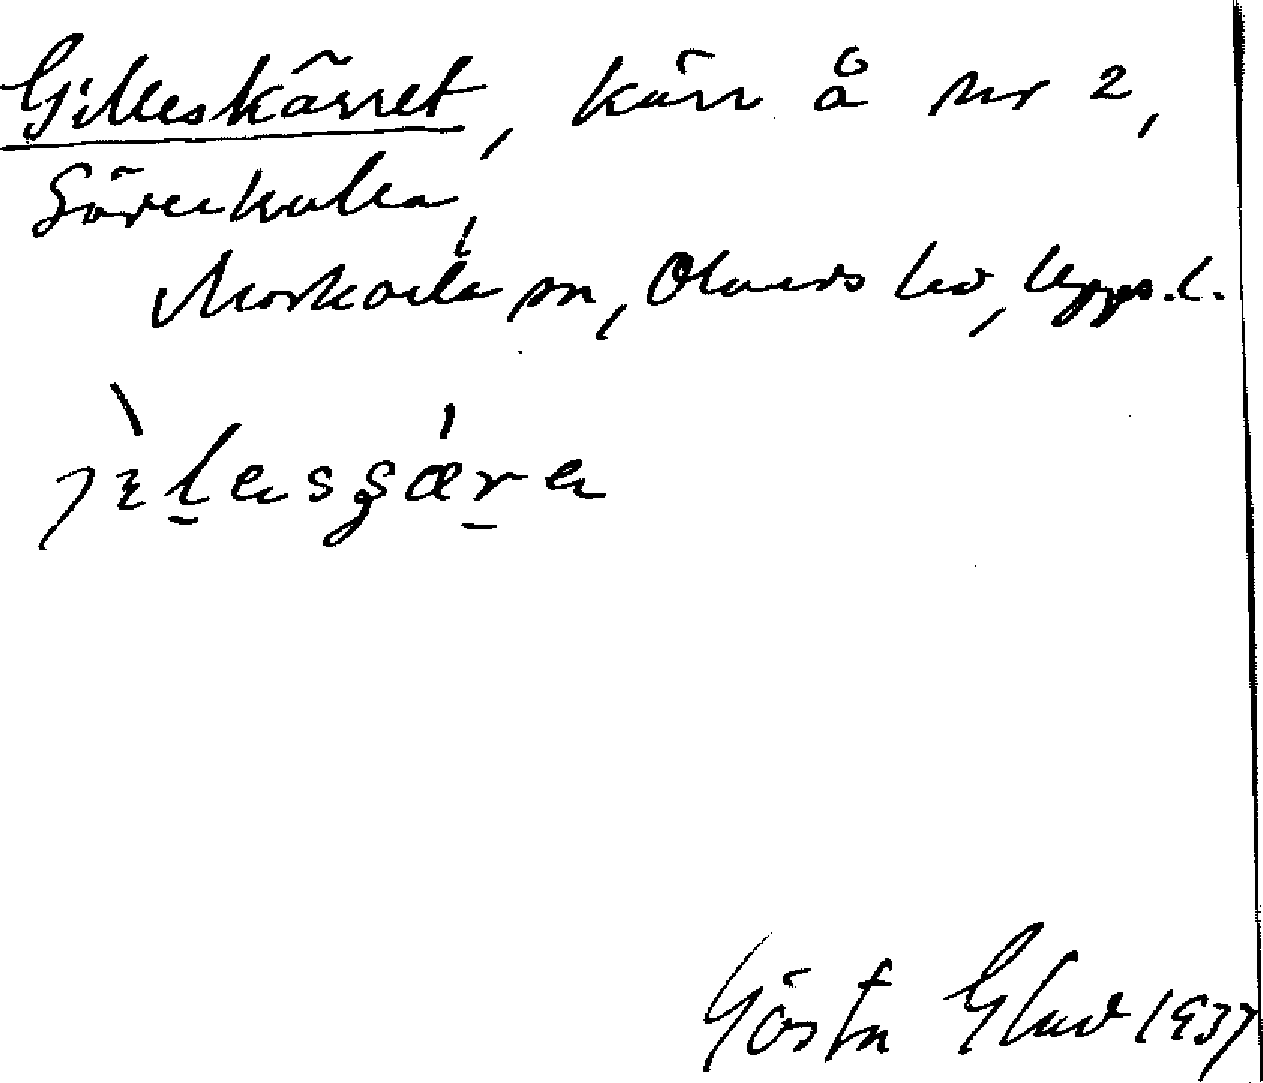 Gilleskärret, kärr å nr 2,
Söverkulla,
Morkarla sn, Olands hd, Upps. l.
Gösta Glad 1937